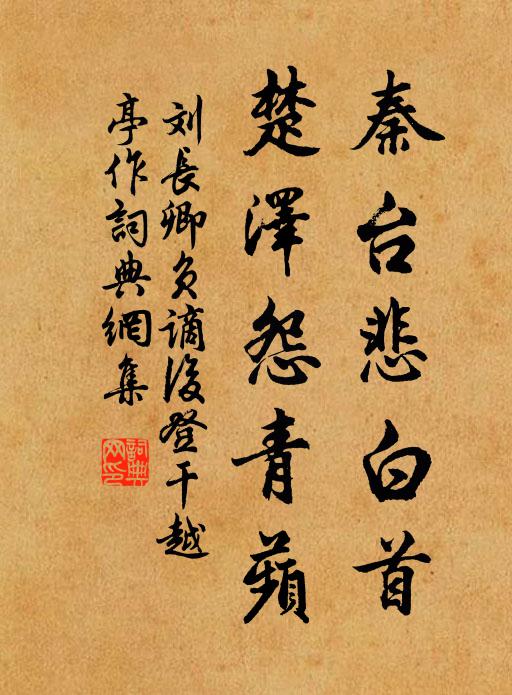 秦台悲白首
楚澤怨青蘋
刘長卿負謫後登干越
亭作詞典網集
詞典網印